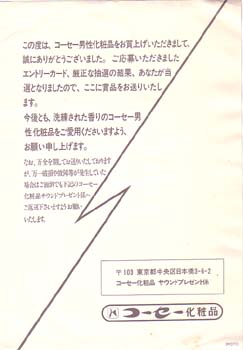 この度は、コーセー男性化粧品をお買上げいただきまして、
誠にありがとうございました。ご応募いただきました
エントリーカード、厳正な抽選の結果、あなたが当
選となりましたので、ここに賞品をお送りいたし
ます。
今後とも、洗練された香りのコーセー男
性化粧品をご愛用くださいますよう、
お願い申し上げます。
なお、万全を期してお送りいたしております
が、万一破損や故障等が発生していた
場合はご面倒でも下記のコーセー
化粧品サウンドプレゼント係へ
ご返送下さいますようお願い
いたします。
〒103 東京都中央区日本橋3-6-2
コーセー化粧品 サウンドプレゼント係
コーセー化粧品